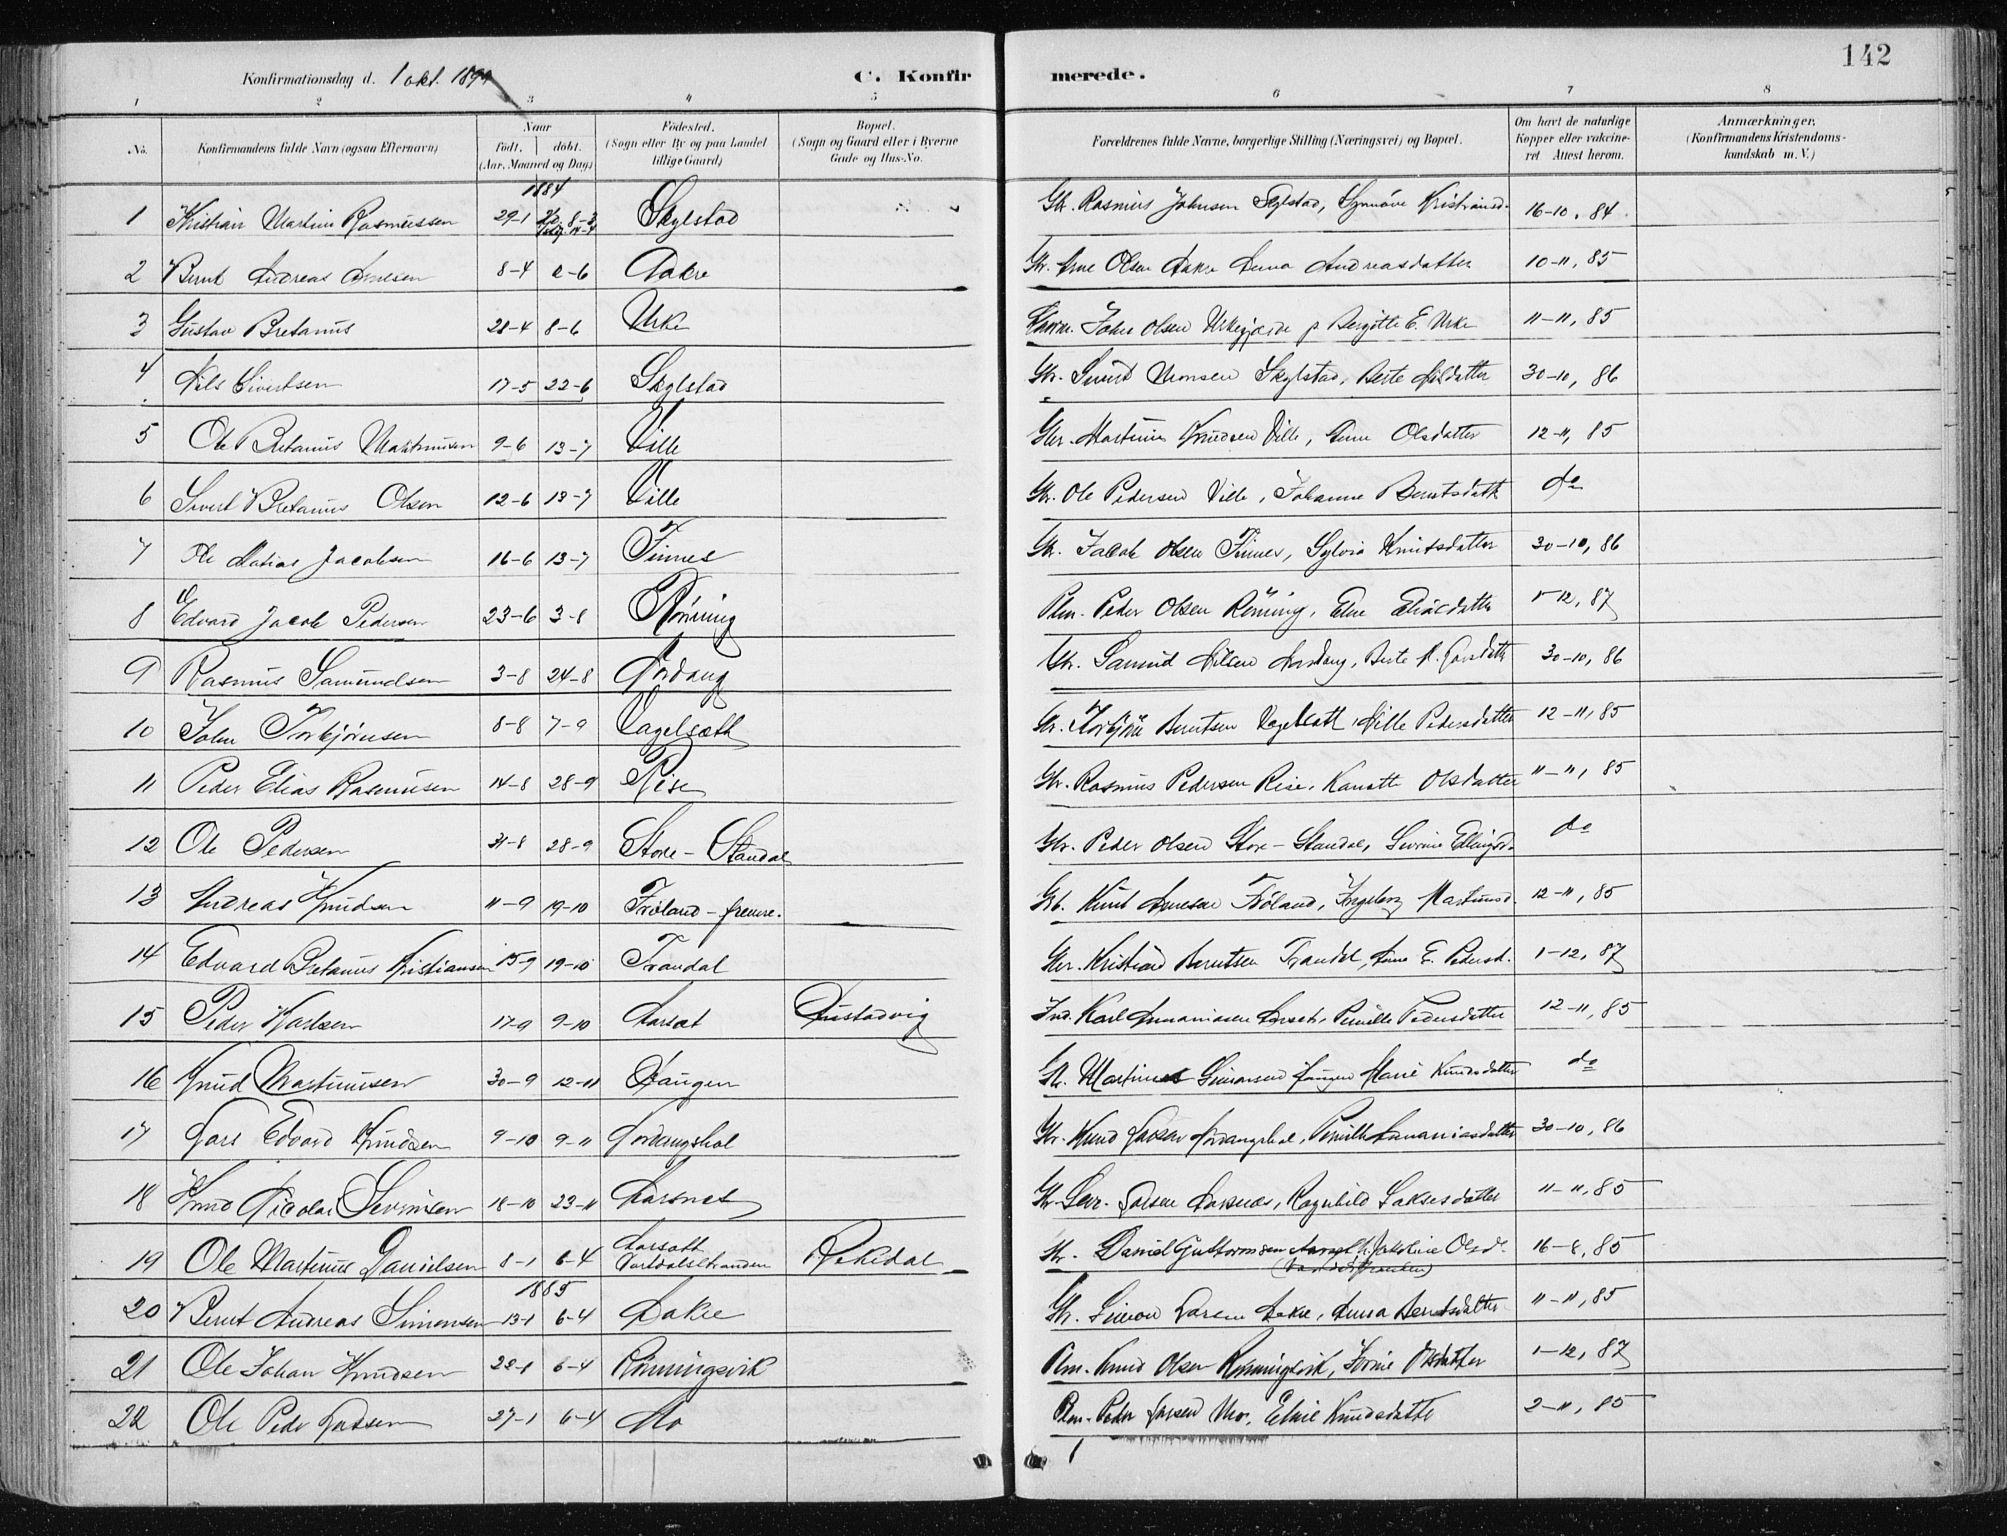 142
Konfirmationsdag d. 1 okt. 1899
C. Konfirmerede.
1 2 3 4 5 6 7 8
No. Konfirmandens fulde Navn (ogsaa Efternavn) Naar født. døbt. (Aar, Maaned og Dag) Fødested. (Sogn eller By og paa Landet tillige Gaard) Bopæl. (Sogn og Gaard eller i Byerne Gade og Hus-No. Forældrenes fulde Navne, borgerlige Stilling (Næringsvei) og Bopæl. Om havt de naturlige Kopper eller vakcineret Attest herom. Anmærkninger. (Konfirmandens Kristendomskundskab m. V.)
1884
1 Kristian Martin Rasmussen 29-1 8-3 14-4 Skylstad Gbr. Rasmus Johnsen Skylstad, Synnöve Kristiansd. 16-10, 84
2 Bernt Andreas Arnesen 8-4 2-6 Aakre Gbr. Arne Olsen Aakre Anna Andreasdatter 10-11, 85
3 Gustav Bretanus 28-4 8-6 Urke John Olsen Urkegjærde p Bergitte E. Urke 11-11, 85
4 Nils Sivertsen 17-5 22-6 Skylstad Gbr. Sivert Monsen Skylstad, Berte Nilsdatter 30-10, 86
5 Ole Bretanus Martinusen 9-6 13-7 Ville Gbr. Martinus Knudsen Ville, Anne Olsdatter 12-11, 85
6 Sivert Bretanus Olsen 12-6 13-7 Ville Gbr. Ole Pedersen Ville, Johanne Berntsdatt do
7 Ole Matias Jacobsen 16-6 13-7 Finnes Gbr. Jacob Olsen Finnes, Sylvia Knutsdatter 30-10, 86
8 Edvard Jacob Pedersen 23-6 3-8 Rönning Plm. Peder Olsen Rönning, Eline Eliasdatter 1-12, 87
9 Rasmus Samundsen 3-8 24-8 Nordang Gbr. Samund Nilsen Nordang, Berte K. Larsdatt 30-10, 86
10 John Torbjörnsen 8-8 7-9 Vagelsæth Gbr. Torbjörn Berntsen Vagelsæth, Nille Pedersdatter 12-11, 85
11 Peder Elias Rasmusen 14-8 28-9 Rise Gbr. Rasmus Pedersen Rise, Kanutte Olsdatter 11-11, 85
12 Ole Pedersen 31-8 28-9 Store-Standal Gbr. Peder Olsen Store-Standal, Sivrine Ellingsd. do
13 Andreas Knudsen 11-9 19-10 Tröland-fremre. Gbr. Knut Arnesen Tröland, Ingeborg Martinusd. 12-11, 85
14 Edvard Bretanus Kristiansen 15-9 19-10 Trandal Gbr. Kristian Berntsen Trandal, Anne E. Pedersd. 1-12, 87
15 Peder Karlsen 17-9 9-10 Aarsæt Hustadvig Ind. Karl Ananiasen Aarset, Pernille Pedersdatter 12-11, 85
16 Knud Martinusen 30-9 12-11 Haugen Gbr. Martinus Haugen Marie Knudsdatter do
17 Lars Edvard Knudsen 9-10 9-11 Nordangshol Gbr. Knud Larsen Nordangshol, Pernille Ananiasdatter 30-10, 86
18 Knud Nicolai Severinsen 18-10 23-11 Aarsnes Gbr. Sevr. Larsen Aarsnes, Ragnhild Saksesdatter 11-11, 85
19 Ole Martinus Danielsen 8-1 6-4 Aarsætt Vartdalstranden Rekkedal Gbr. Daniel Guttormsen Aarseth, Jakobine Olsd. (Vartdalstranden) 16-8, 85
1885
20 Bernt Andreas Simonsen 13-1 6-4 Aakre Gbr. Simon Larsen Aakre, Anna Berntsdatter 11-11, 85
21 Ole Johan Knudsen 22-1 6-4 Rönningsvik Plm. Knud Olsen Rönningsvik, Olsdatter 1-12, 87
22 Ole Peder Larsen 27-1 6-4 Mo Plm. Peder Larsen Mo, Eline Knudsdatte 2-11, 85